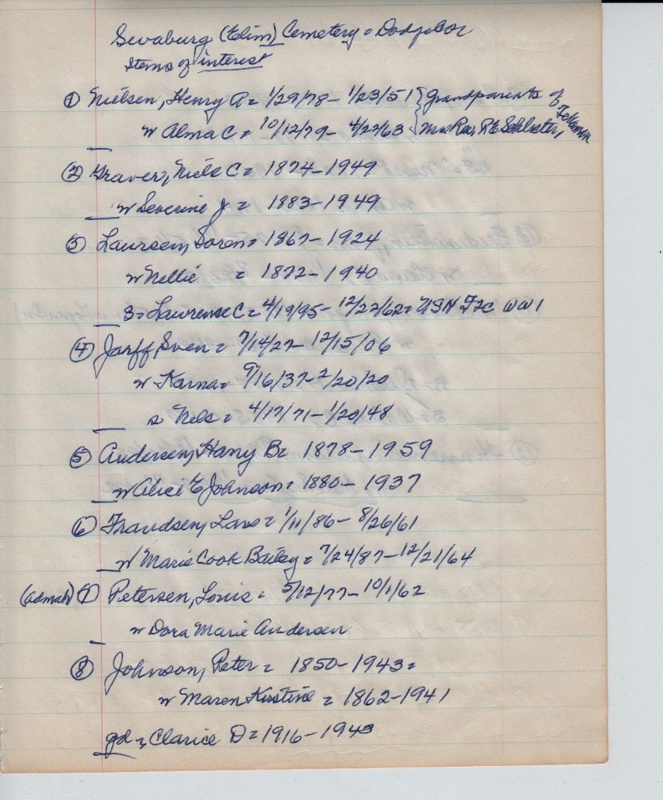 Swaburg (Elim) Cemetery = Dodge Cor
Items of interest
① Nielsen, Henry A = 1/29/78 - 1/23/51 } Grandparents of
w Alma C = 10/12/79 - 4/22/63 Mrs Ray Tekamah
② Graver, Niels C = 1874-1949
w Severine J = 1883-1949
③ Laursen, Soren = 1867-1924
w Nellie = 1872-1940
s = Lawrense C = 4/19/95 - 12/22/62 = USN F2C WW1
④ Jarff, Sven = 7/14/27 - 12/15/06
w Karna = 9/16/37 - 2/20/20
s Nels = 4/17/71 - 1/20/48
⑤ Andersen, Harry B = 1878-1959
w Alice E Johnson = 1880-1937
⑥ Frandsen, Lars = 1/11/86 - 8/26/61
w Marie Cook Bailey = 7/24/87 - 12/21/64
(Admah) ⑦ Petersen, Louis = 5/12/77 - 10/1/62
w Dora Marie Andersen
⑧ Johnson, Peter = 1850-1943 =
w Maren Kirstine = 1862-1941
gd = Clarice D = 1916-1943